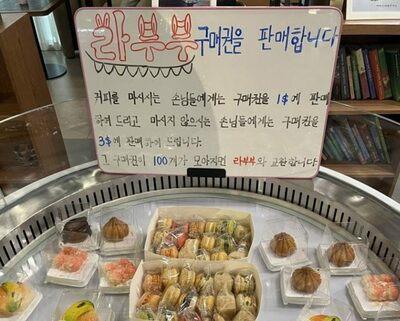 라부부 구매권을 판매합니다
커피를 마시시는 손님들에게는 구매권을 1$에 판매
하게 드리고 마시지 않으시는 손님들에게는 구매권을
3$에 판매하게 드립니다.
구매권이 100개가 모아지면 라부부와 교환합니다